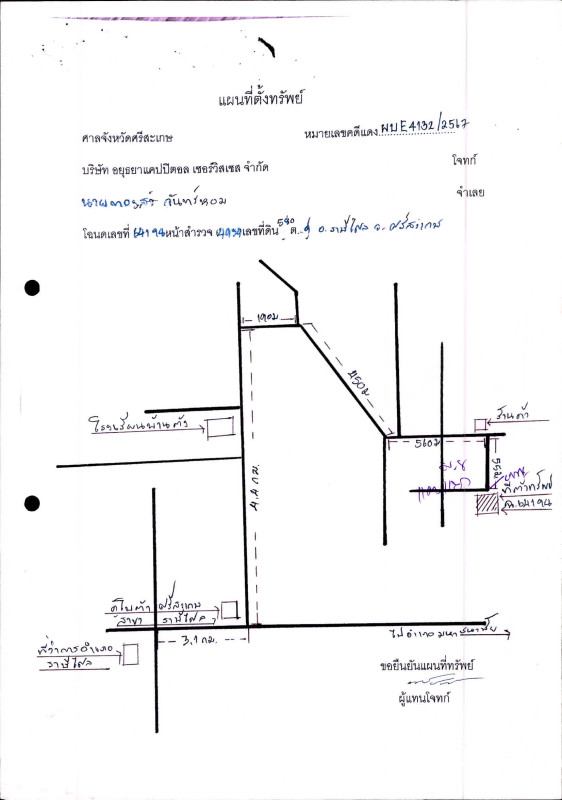 แผนที่ตั้งทรัพย์
ศาลจังหวัดศรีสะเกษ หมายเลขคดีแดง ผบE4132/2567
บริษัท อยุธยาแคปปิตอล เซอร์วิสเซส จำกัด โจทก์
จันทร์หอม จำเลย
โฉนดเลขที่ 64194 หน้าสำรวจ เลขที่ดิน 580 ต. อ.ราษีไศล จ.ศรีสะเกษ
190ม
450ม
ร้านค้า
โรงเรียนบ้าน
560ม
55ม
ม.8
4.4 กม.
ที่ตั้งทรัพย์
ฉ.64194
ศรีสะเกษ
สาขา ราษีไศล
3.1 กม.
ไปอำเภอ
ที่ว่าการอำเภอ
ราษีไศล
ขอยืนยันแผนที่ทรัพย์
ผู้แทนโจทก์